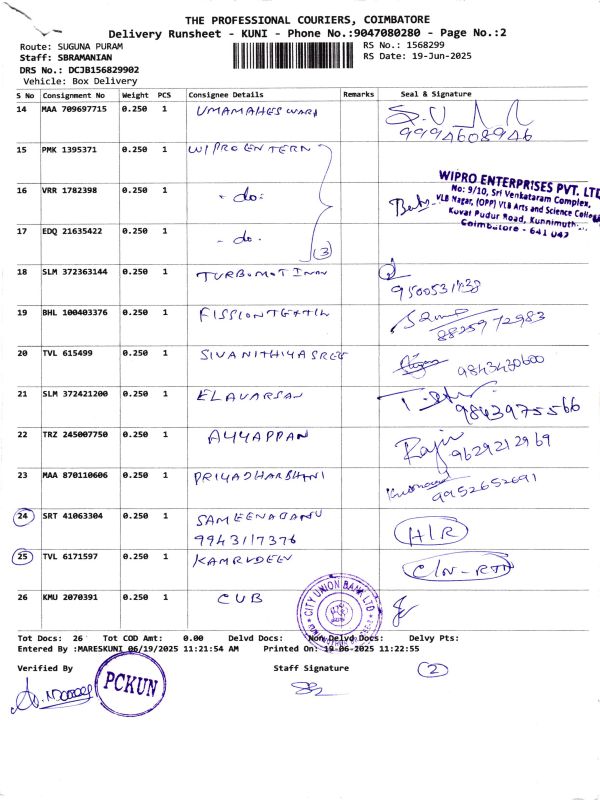 THE PROFESSIONAL COURIERS, COIMBATORE
Delivery Runsheet - KUNI - Phone No.:9047080280 - Page No.:2
Route: SUGUNA PURAM
RS No.: 1568299
Staff: SBRAMANIAN
RS Date: 19-Jun-2025
DRS No.: DCJB156829902
Vehicle: Box Delivery
S No Consignment No Weight PCS Consignee Details Remarks Seal & Signature
14 MAA 709697715 0.250 1 UMAMAHESWARI
9994608946
15 PMK 1395371 0.250 1 WIPRO ENTERN
WIPRO ENTERPRISES PVT. LTD
No: 9/10, Sri Venkataram Complex,
VLB Nagar, (OPP) VLB Arts and Science College
Kovai Pudur Road, Kunnimuth
Coimbatore - 641 042
16 VRR 1782398 0.250 1 - do -
17 EDQ 21635422 0.250 1 - do -
(3)
18 SLM 372363144 0.250 1
19 BHL 100403376 0.250 1 FISSIONTEXTIL
8825972983
20 TVL 615499 0.250 1 SIVANITHIYASREE
9843430600
21 SLM 372421200 0.250 1 ELAVARSAN
9843975566
22 TRZ 245007750 0.250 1 AYYAPPAN
9629212969
23 MAA 870110606 0.250 1 PRIYADHARSHNI
9952652691
24 SRT 41063304 0.250 1 SAMEENABANU
9943117376
H/R
25 TVL 6171597 0.250 1 KAMRUDEEN
C/N-RTN
26 KMU 2070391 0.250 1 CUB
CITY UNION BANK LTD
Tot Docs: 26 Tot COD Amt: 0.00 Delvd Docs: Non Delvd Docs: Delvy Pts:
Entered By :MARESKUNI 06/19/2025 11:21:54 AM Printed On: 19-06-2025 11:22:55
Verified By
Staff Signature
(2)
PCKUN